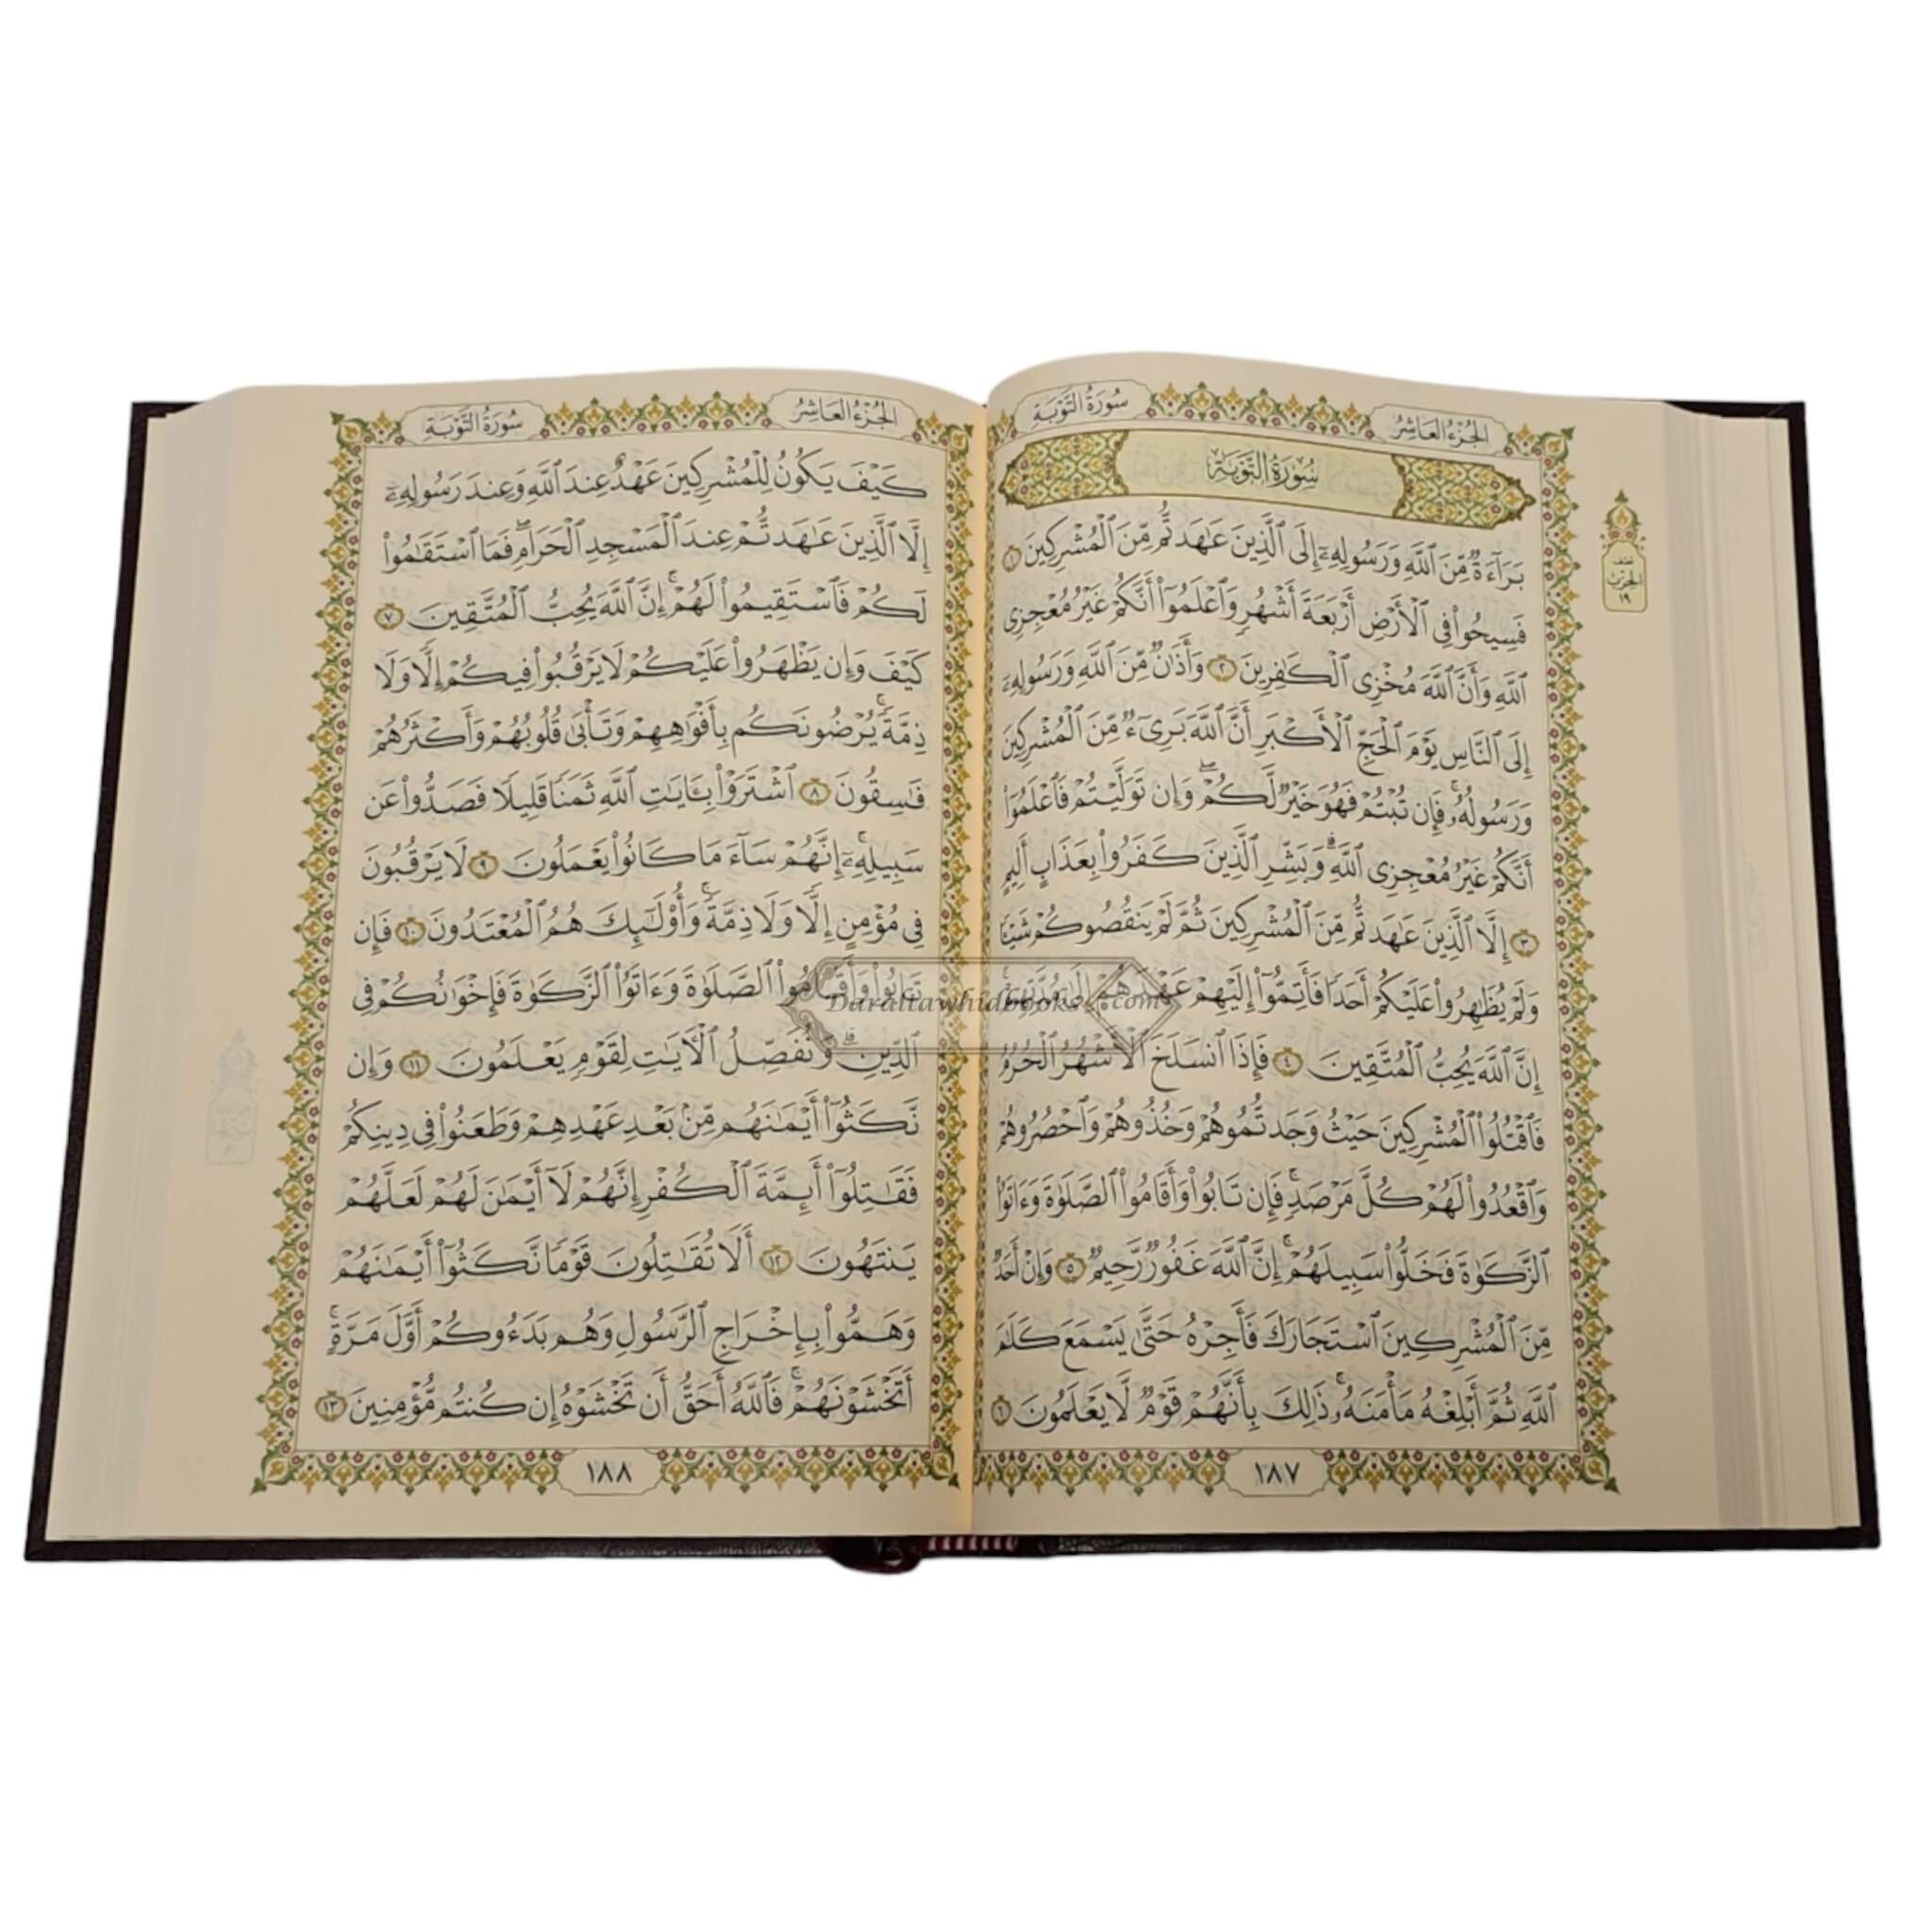 الجُزْءُ العَاشِرُ
سُورَةُ التَّوْبَةِ
سُورَةُ التَّوْبَةِ
بَرَآءَةٌ مِّنَ ٱللَّهِ وَرَسُولِهِۦٓ إِلَى ٱلَّذِينَ عَٰهَدتُّم مِّنَ ٱلْمُشْرِكِينَ ١
فَسِيحُوا۟ فِى ٱلْأَرْضِ أَرْبَعَةَ أَشْهُرٍ وَٱعْلَمُوٓا۟ أَنَّكُمْ غَيْرُ مُعْجِزِى
ٱللَّهِ وَأَنَّ ٱللَّهَ مُخْزِى ٱلْكَٰفِرِينَ ٢ وَأَذَٰنٌ مِّنَ ٱللَّهِ وَرَسُولِهِۦٓ
إِلَى ٱلنَّاسِ يَوْمَ ٱلْحَجِّ ٱلْأَكْبَرِ أَنَّ ٱللَّهَ بَرِىٓءٌ مِّنَ ٱلْمُشْرِكِينَ
وَرَسُولُهُۥ ۚ فَإِن تُبْتُمْ فَهُوَ خَيْرٌ لَّكُمْ ۖ وَإِن تَوَلَّيْتُمْ فَٱعْلَمُوٓا۟
أَنَّكُمْ غَيْرُ مُعْجِزِى ٱللَّهِ ۗ وَبَشِّرِ ٱلَّذِينَ كَفَرُوا۟ بِعَذَابٍ أَلِيمٍ
٣ إِلَّا ٱلَّذِينَ عَٰهَدتُّم مِّنَ ٱلْمُشْرِكِينَ ثُمَّ لَمْ يَنقُصُوكُمْ شَيْـًٔا
وَلَمْ يُظَٰهِرُوا۟ عَلَيْكُمْ أَحَدًا فَأَتِمُّوٓا۟ إِلَيْهِمْ عَهْدَهُمْ إِلَىٰ مُدَّتِهِمْ ۚ
إِنَّ ٱللَّهَ يُحِبُّ ٱلْمُتَّقِينَ ٤ فَإِذَا ٱنسَلَخَ ٱلْأَشْهُرُ ٱلْحُرُمُ
فَٱقْتُلُوا۟ ٱلْمُشْرِكِينَ حَيْثُ وَجَدتُّمُوهُمْ وَخُذُوهُمْ وَٱحْصُرُوهُمْ
وَٱقْعُدُوا۟ لَهُمْ كُلَّ مَرْصَدٍ ۚ فَإِن تَابُوا۟ وَأَقَامُوا۟ ٱلصَّلَوٰةَ وَءَاتَوُا۟
ٱلزَّكَوٰةَ فَخَلُّوا۟ سَبِيلَهُمْ ۚ إِنَّ ٱللَّهَ غَفُورٌ رَّحِيمٌ ٥ وَإِنْ أَحَدٌ
مِّنَ ٱلْمُشْرِكِينَ ٱسْتَجَارَكَ فَأَجِرْهُ حَتَّىٰ يَسْمَعَ كَلَٰمَ
ٱللَّهِ ثُمَّ أَبْلِغْهُ مَأْمَنَهُۥ ۚ ذَٰلِكَ بِأَنَّهُمْ قَوْمٌ لَّا يَعْلَمُونَ ٦
١٨٧
نصف
الحِزْب
١٩
الجُزْءُ العَاشِرُ
سُورَةُ التَّوْبَةِ
كَيْفَ يَكُونُ لِلْمُشْرِكِينَ عَهْدٌ عِندَ ٱللَّهِ وَعِندَ رَسُولِهِۦٓ
إِلَّا ٱلَّذِينَ عَٰهَدتُّمْ عِندَ ٱلْمَسْجِدِ ٱلْحَرَامِ ۖ فَمَا ٱسْتَقَٰمُوا۟
لَكُمْ فَٱسْتَقِيمُوا۟ لَهُمْ ۚ إِنَّ ٱللَّهَ يُحِبُّ ٱلْمُتَّقِينَ ٧
كَيْفَ وَإِن يَظْهَرُوا۟ عَلَيْكُمْ لَا يَرْقُبُوا۟ فِيكُمْ إِلًّا وَلَا
ذِمَّةً ۚ يُرْضُونَكُم بِأَفْوَٰهِهِمْ وَتَأْبَىٰ قُلُوبُهُمْ وَأَكْثَرُهُمْ
فَٰسِقُونَ ٨ ٱشْتَرَوْا۟ بِـَٔايَٰتِ ٱللَّهِ ثَمَنًا قَلِيلًا فَصَدُّوا۟ عَن
سَبِيلِهِۦٓ ۚ إِنَّهُمْ سَآءَ مَا كَانُوا۟ يَعْمَلُونَ ٩ لَا يَرْقُبُونَ
فِى مُؤْمِنٍ إِلًّا وَلَا ذِمَّةً ۚ وَأُو۟لَٰٓئِكَ هُمُ ٱلْمُعْتَدُونَ ١٠ فَإِن
تَابُوا۟ وَأَقَامُوا۟ ٱلصَّلَوٰةَ وَءَاتَوُا۟ ٱلزَّكَوٰةَ فَإِخْوَٰنُكُمْ فِى
ٱلدِّينِ ۗ وَنُفَصِّلُ ٱلْـَٔايَٰتِ لِقَوْمٍ يَعْلَمُونَ ١١ وَإِن
نَّكَثُوٓا۟ أَيْمَٰنَهُم مِّنۢ بَعْدِ عَهْدِهِمْ وَطَعَنُوا۟ فِى دِينِكُمْ
فَقَٰتِلُوٓا۟ أَئِمَّةَ ٱلْكُفْرِ ۙ إِنَّهُمْ لَآ أَيْمَٰنَ لَهُمْ لَعَلَّهُمْ
يَنتَهُونَ ١٢ أَلَا تُقَٰتِلُونَ قَوْمًا نَّكَثُوٓا۟ أَيْمَٰنَهُمْ
وَهَمُّوا۟ بِإِخْرَاجِ ٱلرَّسُولِ وَهُم بَدَءُوكُمْ أَوَّلَ مَرَّةٍ ۚ
أَتَخْشَوْنَهُمْ ۚ فَٱللَّهُ أَحَقُّ أَن تَخْشَوْهُ إِن كُنتُم مُّؤْمِنِينَ ١٣
١٨٨
Daraltawhidbooks.com